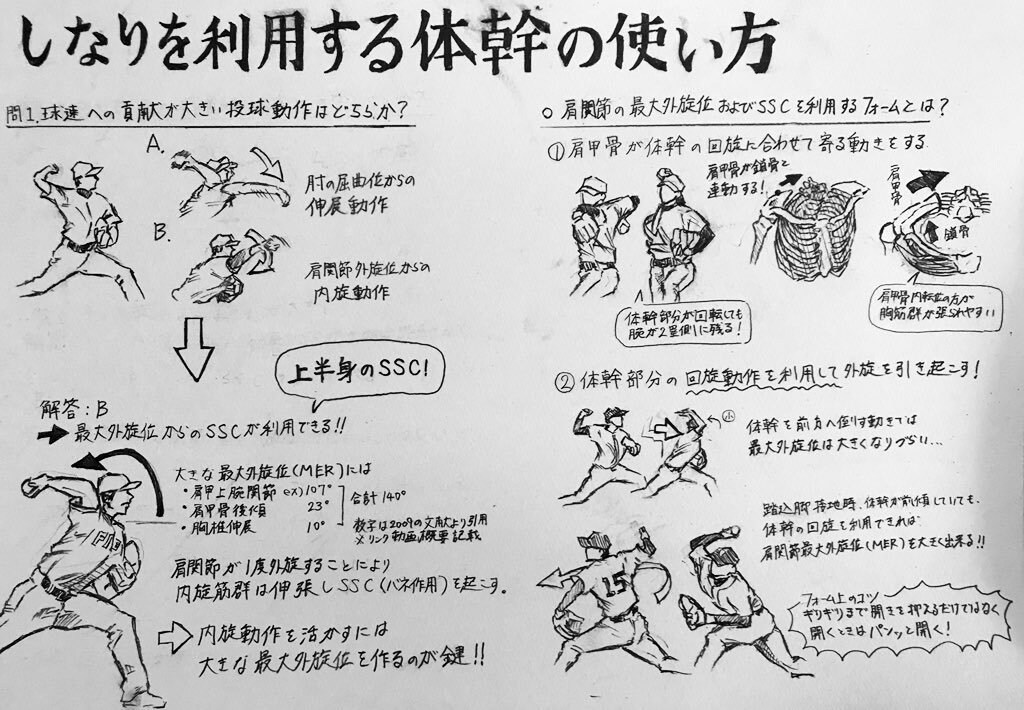 しなりを利用する体幹の使い方
問1.球速への貢献が大きい投球動作はどちらか?
A.
肘の屈曲位からの
伸展動作
B.
肩関節外旋位からの
内旋動作
上半身のSSC!
解答:B
➡最大外旋位からのSSCが利用できる!!
大きな最大外旋位(MER)には
・肩甲上腕関節 ex)107°
・肩甲骨後傾 23°
・胸椎伸展 10°
合計140°
数字は2009の文献より引用
※リンク動画概要記載
肩関節が1度外旋することにより
内旋筋群は伸張しSSC(バネ作用)を起こす。
⇨内旋動作を活かすには
大きな最大外旋位を作るのが鍵!!
○肩関節の最大外旋位およびSSCを利用するフォームとは?
①肩甲骨が体幹の回旋に合わせて寄る動きをする
肩甲骨が鎖骨と
連動する!
肩甲骨
鎖骨
体幹部分が回転しても
腕が2塁側に残る!
肩甲骨内転位の方が
胸筋群が張られやすい
②体幹部分の回旋動作を利用して外旋を引き起こす!
小
体幹を前方へ倒す動きでは
最大外旋位は大きくなりづらい…
踏込脚接地時、体幹が前傾していても、
体幹の回旋を利用できれば
肩関節最大外旋位(MER)を大きく出来る!!
15
フォーム上のコツ
ギリギリまで開きを抑えるだけではなく
開くときはパンッと開く!